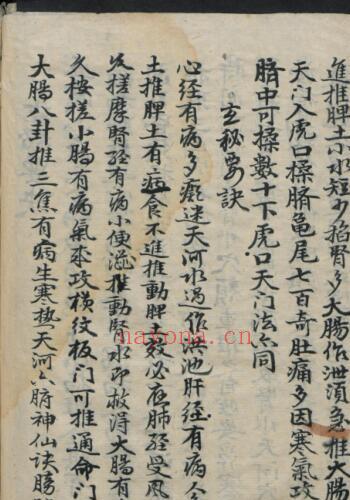 進推脾土小水短少掐腎多大腸作泄須急推大腸
天门入虎口揉臍龟尾七百奇肚痛多因寒氣攻
臍中可揉数十下虎口天门法亦同
玄秘要訣
心経有病多痴迷天河水过作洪池肝経有病人
土推脾土有病食不進推動脾土效必应肺経受風
久搓摩腎経有病小便澁推動腎水即救得大腸有
久按搓小腸有病氣來攻横纹板门可推通命门
大腸八卦推三焦有病生寒热天河六腑神仙诀膀胱
nayona.cn